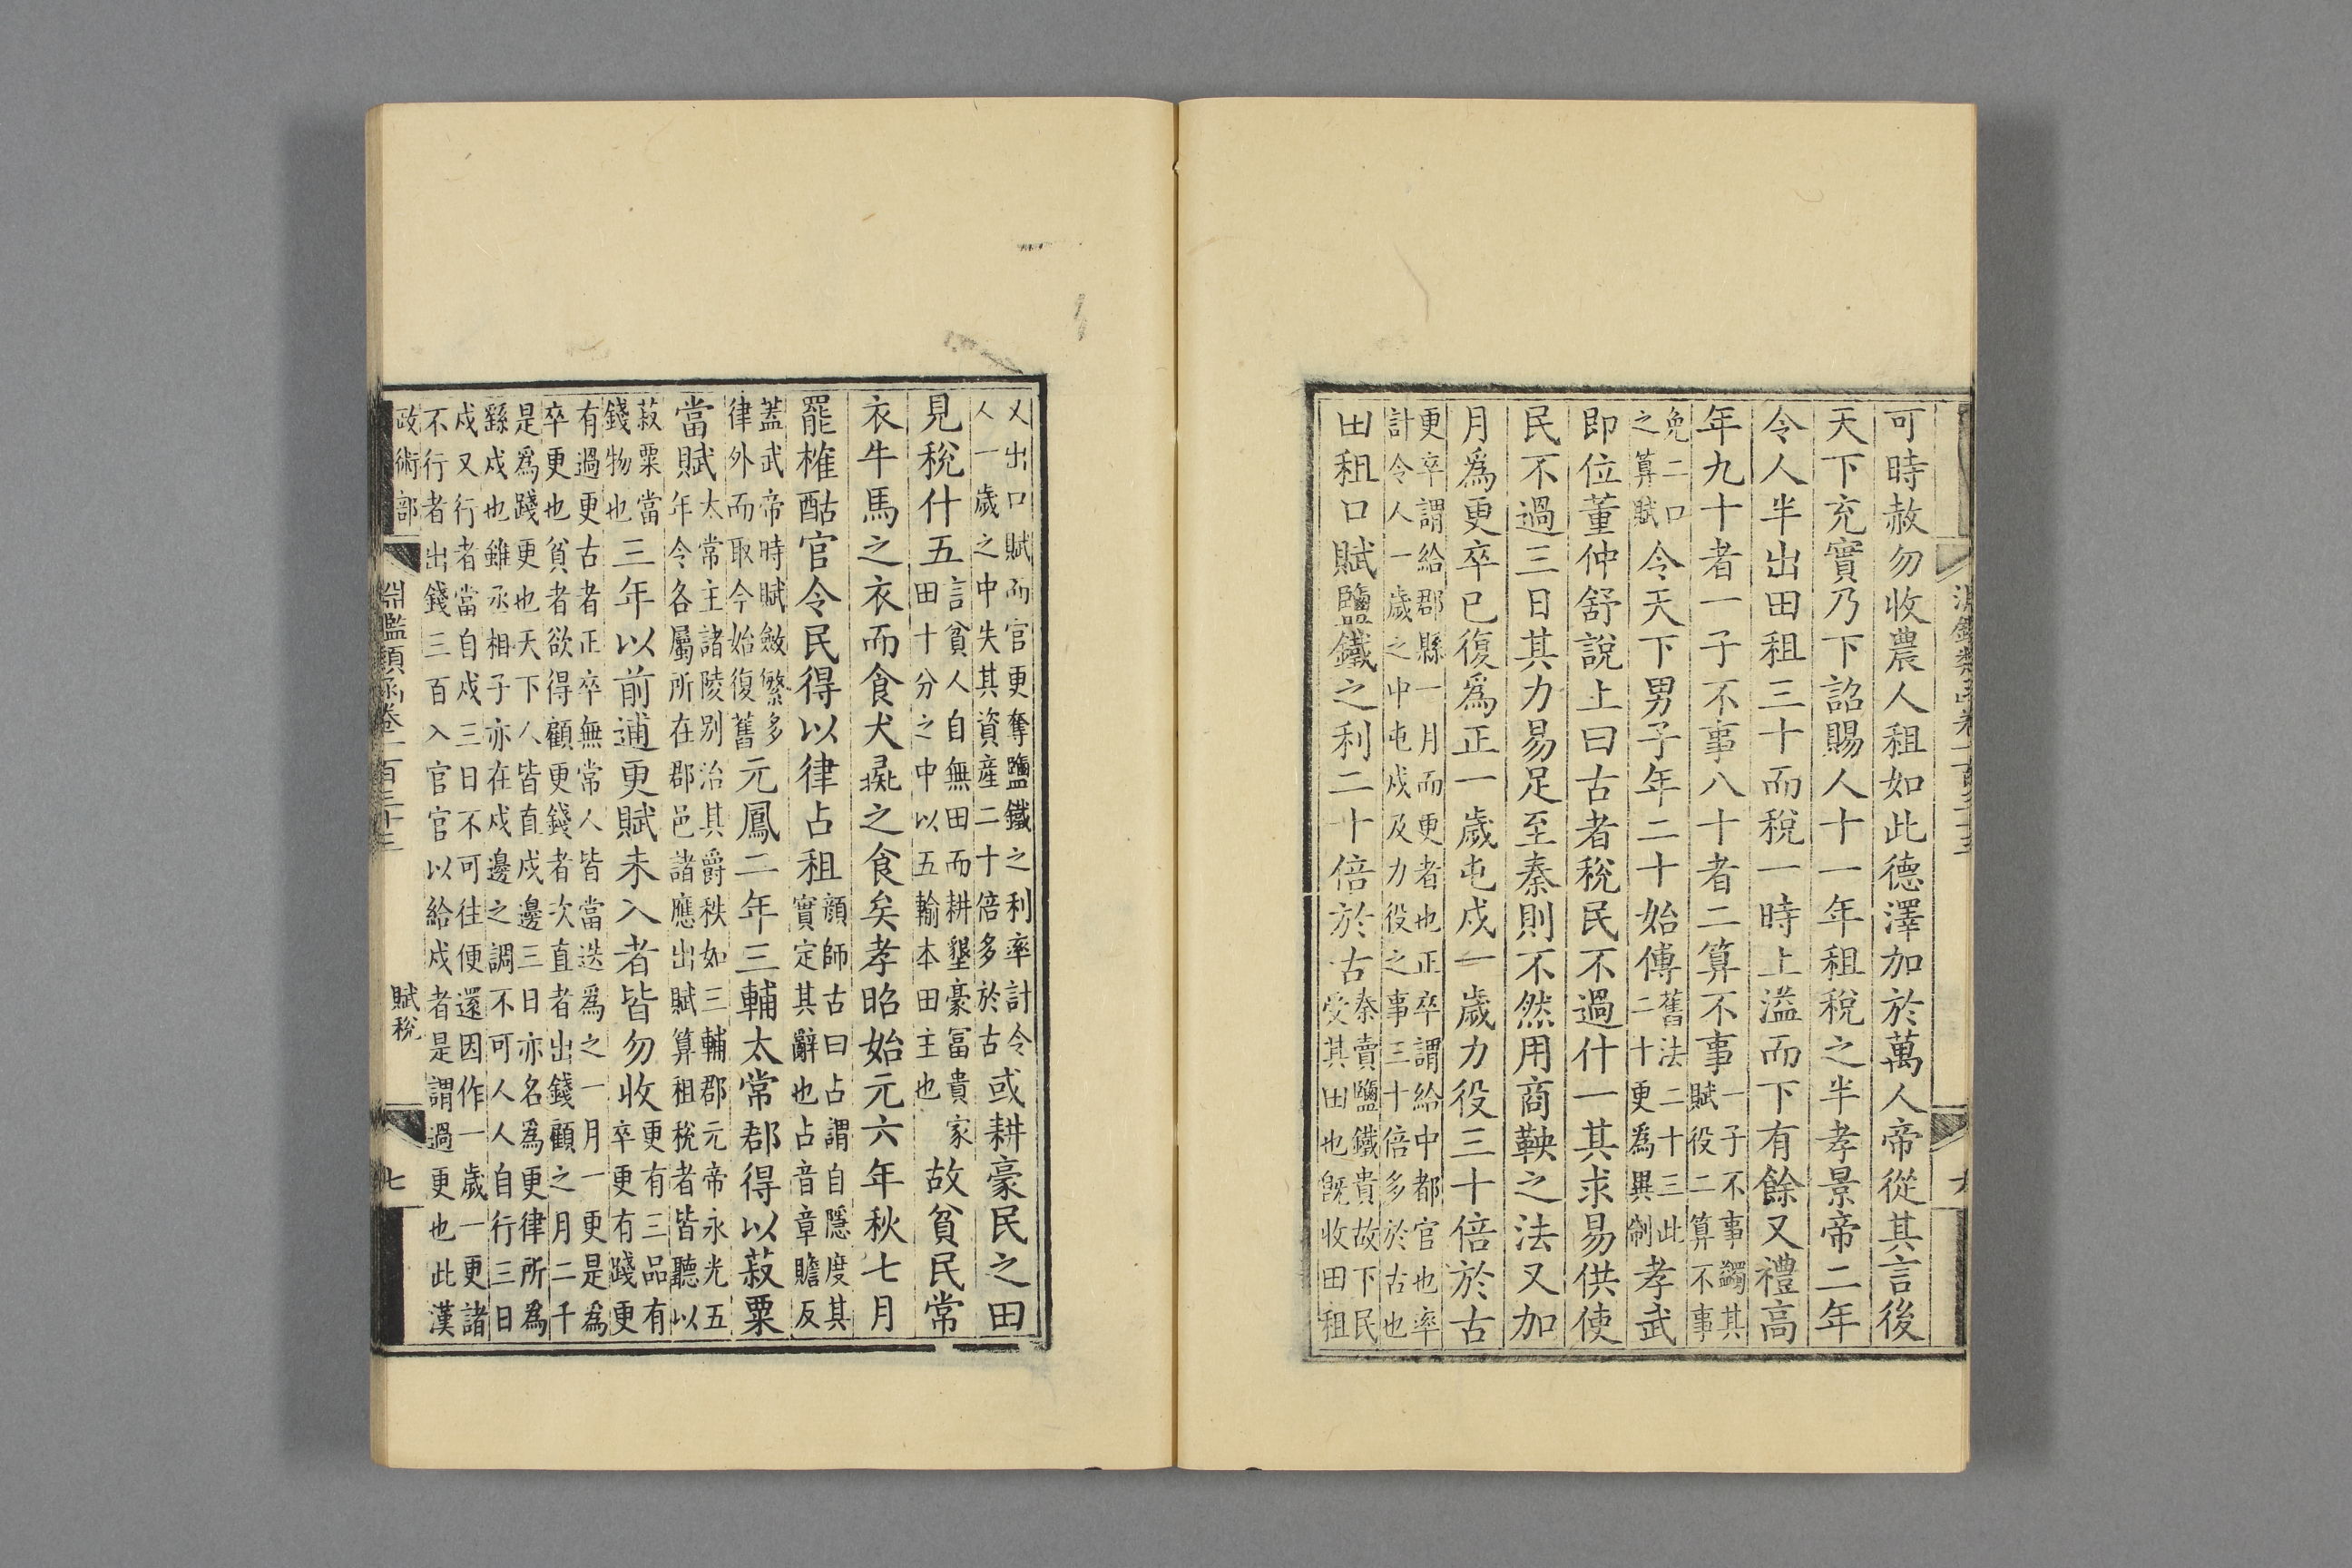 可時赦勿收農人租如此德澤加於萬人帝從其言後
天下充實乃下詔賜人十一年租稅之半孝景帝二年
令人半出田租三十而稅一時上溢而下有餘又禮高
年九十者一子不事八十者二算不事一子不事蠲其賦役二算不事
免二口之算賦令天下男子年二十始傅舊法二十三此二十更為異制孝武
即位董仲舒說上曰古者稅民不過什一其求易供使
民不過三日其力易足至秦則不然用商鞅之法又加
月為更卒已復為正一歲屯戍一歲力役三十倍於古
更卒謂給郡縣一月而更者也正卒謂給中都官也率計令人一歲之中屯戍及力役之事三十倍多於古也
田租口賦鹽鐵之利二十倍於古秦賣鹽鐵貴故下民受其困也既收田租
又出口賦而官更奪鹽鐵之利率計今人一歲之中失其資產二十倍多於古或耕豪民之田
見稅什五言貧人自無田而耕墾豪富貴家田十分之中以五輸本田主也故貧民常
衣牛馬之衣而食犬彘之食矣孝昭始元六年秋七月
罷榷酤官令民得以律占租顔師古曰占謂自隱度其實定其辭也占音章贍反
蓋武帝時賦斂繁多律外而取今始復舊元鳳二年三輔太常郡得以菽粟
當賦太常主諸陵别治其爵秩如三輔郡元帝永光五年令各屬所在郡邑諸應出賦算租稅者皆聽以
菽粟當錢物也三年以前逋更賦未入者皆勿收更有三品有卒更有踐更
有過更古者正卒無常人皆當迭為之一月一更是為卒更也貧者欲得顧更錢者次直者出錢顧之月二千
是為踐更也天下人皆直戍邊三日亦名為更律所為繇戍也雖丞相子亦在戍邊之調不可人人自行三日
戍又行者當自戍三日不可往便還因作一歲一更諸不行者出錢三百入官官以給戍者是謂過更也此漢
政術部 淵鑑類函卷一百三十三 賦稅 七